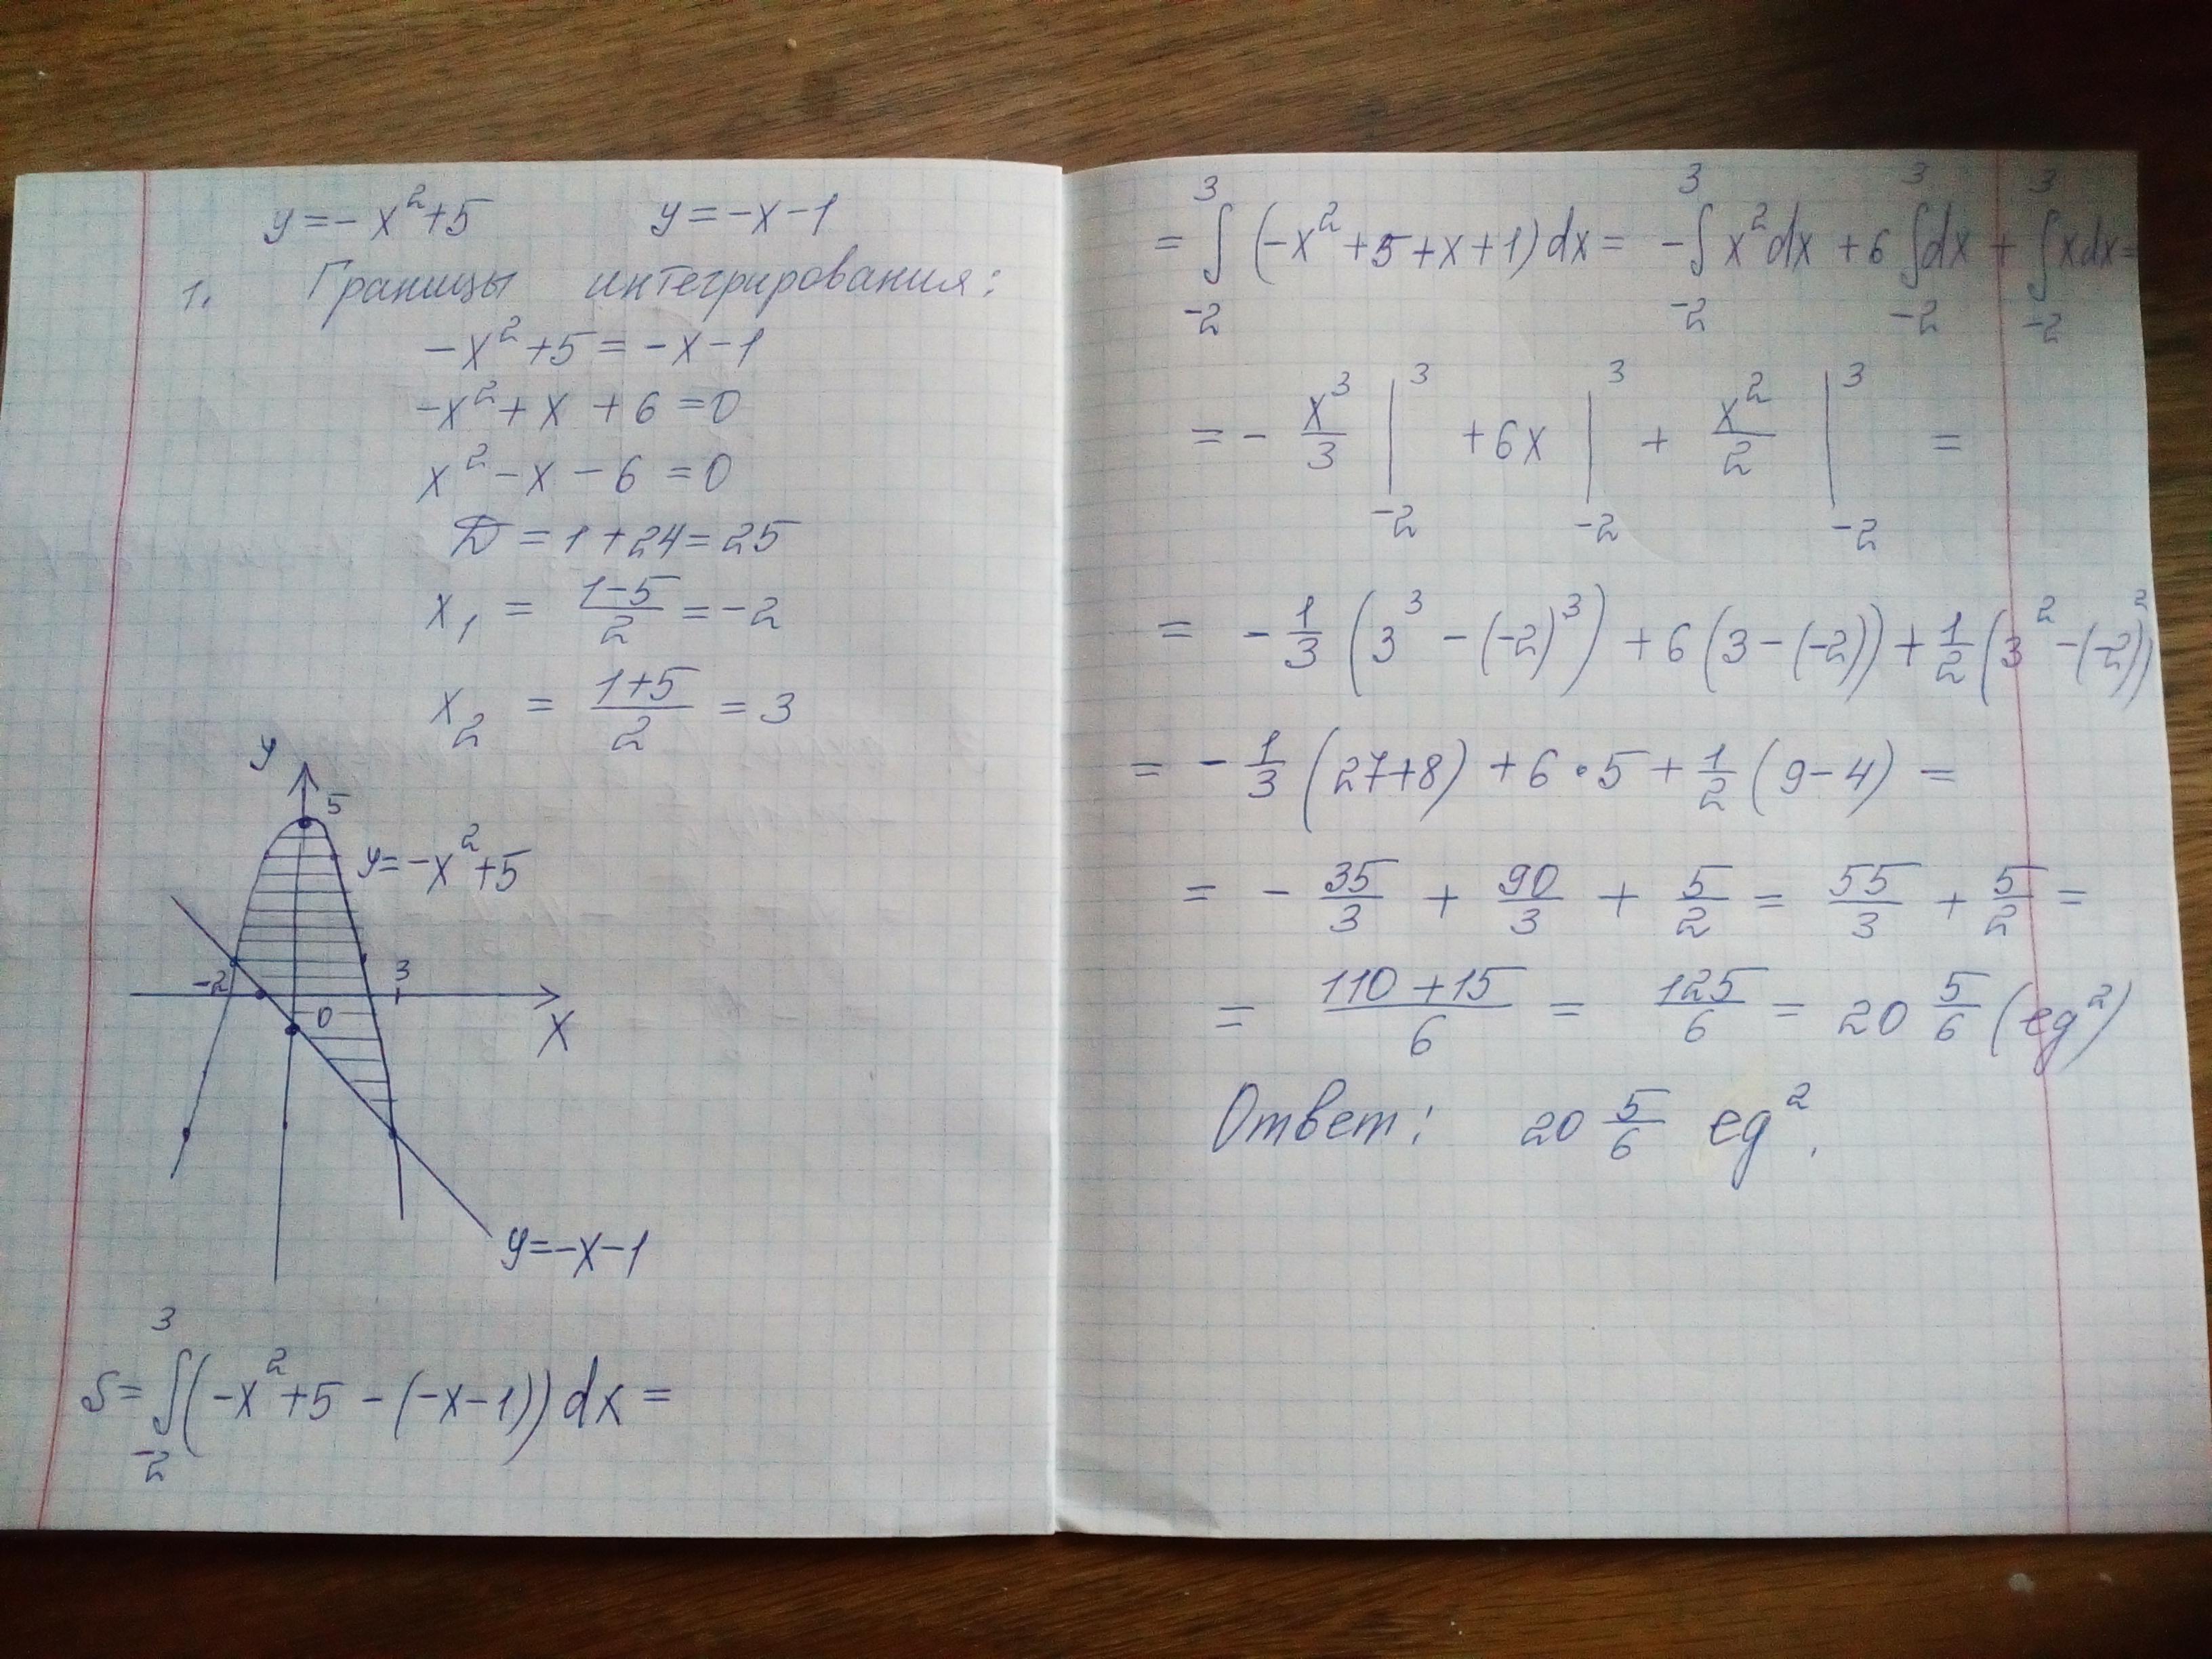 y = -x² + 5    y = -x - 1
1. Границы интегрирования:
-x² + 5 = -x - 1
-x² + x + 6 = 0
x² - x - 6 = 0
D = 1 + 24 = 25
x₁ = (1-5)/2 = -2
x₂ = (1+5)/2 = 3
y
5
y = -x² + 5
-2
3
0
X
y = -x - 1
S = ∫₋₂³ (-x² + 5 - (-x - 1)) dx =
= ∫₋₂³ (-x² + 5 + x + 1) dx = -∫₋₂³ x² dx + 6 ∫₋₂³ dx + ∫₋₂³ x dx =
= - x³/3 |₋₂³ + 6x |₋₂³ + x²/2 |₋₂³ =
= - 1/3 (3³ - (-2)³) + 6 (3 - (-2)) + 1/2 (3² - (-2)²)
= - 1/3 (27 + 8) + 6 · 5 + 1/2 (9 - 4) =
= - 35/3 + 90/3 + 5/2 = 55/3 + 5/2 =
= (110 + 15)/6 = 125/6 = 20 5/6 (ед²)
Ответ: 20 5/6 ед².